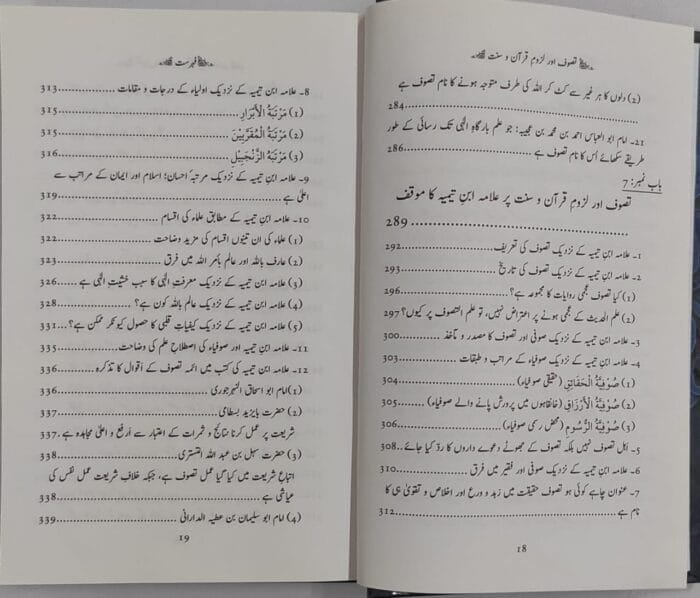 تصوف اور لزومِ قرآن و سنت
(2) دلوں کا ہر غیر سے کٹ کر اللہ کی طرف متوجہ ہونے کا نام تصوف ہے
284
21- امام ابو العباس احمد بن محمد بن عجیبہ: جو علم بارگاہِ الٰہی تک رسائی کے طور
طریقے سکھائے اُس کا نام تصوف ہے 286
باب نمبر: 7
تصوف اور لزومِ قرآن و سنت پر علامہ ابنِ تیمیہ کا موقف
289
1- علامہ ابنِ تیمیہ کے نزدیک تصوف کی تعریف 292
2- علامہ ابنِ تیمیہ کے نزدیک تصوف کی تاریخ 293
(1) کیا تصوف عجمی روایات کا مجموعہ ہے؟ 296
(2) علم الحدیث کے عجمی ہونے پر اعتراض نہیں، تو علم التصوف پر کیوں؟ 297
3- علامہ ابنِ تیمیہ کے نزدیک صوفی اور تصوف کا مصدر و مآخذ 300
4- علامہ ابنِ تیمیہ کے نزدیک صوفیاء کے مراتب و طبقات 303
(1) صُوْفِيَّةُ الْحَقَائِقِ (حقیقی صوفیاء) 304
(2) صُوْفِيَّةُ الْأَرْزَاقِ (خانقاہوں میں پرورش پانے والے صوفیاء) 305
(3) صُوْفِيَّةُ الرُّسُومِ (محض رسمی صوفیاء) 306
5- اہلِ تصوف نہیں بلکہ تصوف کے جھوٹے دعوے داروں کا ردّ کیا جائے 308
6- علامہ ابنِ تیمیہ کے نزدیک صوفی اور فقیر میں فرق 310
7- عنوان چاہے کوئی ہو تصوف حقیقت میں زہد و ورع اور اخلاص و تقویٰ ہی کا
نام ہے 312
18
فہرست
8- علامہ ابنِ تیمیہ کے نزدیک اولیاء کے درجات و مقامات 313
(1) مَرْتَبَةُ الْأَبْرَارِ 315
(2) مَرْتَبَةُ الْمُقَرَّبِيْنَ 315
(3) مَرْتَبَةُ الزَّنْجَبِيْلِ 316
9- علامہ ابنِ تیمیہ کے نزدیک مرتبۂ احسان؛ اسلام اور ایمان کے مراتب سے
اعلیٰ ہے 319
10- علامہ ابنِ تیمیہ کے مطابق علماء کی اقسام 322
(1) علماء کی ان تینوں اقسام کی مزید وضاحت 322
(2) عارف باللہ اور عالم بأمر اللہ میں فرق 323
(3) علامہ ابنِ تیمیہ کے نزدیک معرفتِ الٰہی کا سبب خشیتِ الٰہی ہے 326
(4) علامہ ابنِ تیمیہ کے نزدیک عالم باللہ کون ہے؟ 328
(5) علامہ ابنِ تیمیہ کے نزدیک کیفیاتِ قلبی کا حصول کیونکر ممکن ہے؟ 331
11- علامہ ابنِ تیمیہ اور صوفیاء کی اصطلاحِ علم کی وضاحت 335
12- علامہ ابنِ تیمیہ کی کتب میں ائمہ تصوف کے اَقوال کا تذکرہ 336
(1) امام ابو اسحاق النہرجوری 336
(2) حضرت بایزید بسطامی 337
شریعت پر عمل کرنا نتائج و ثمرات کے اعتبار سے اَرفع و اعلیٰ مجاہدہ ہے 337
(3) حضرت سہل بن عبد اللہ التستری 338
اتباعِ شریعت میں کیا گیا عمل تصوف ہے، جبکہ خلافِ شریعت عمل نفس کی
عیاشی ہے 338
(4) امام ابو سلیمان بن عطیہ الدارانی 339
19